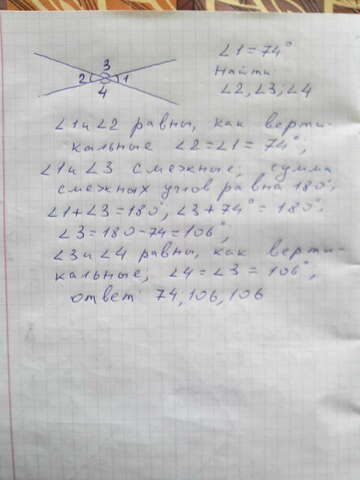 3
2 1
4
∠1 = 74°
Найти
∠2, ∠3, ∠4
∠1 и ∠2 равны, как верти-
кальные ∠2 = ∠1 = 74°;
∠1 и ∠3 смежные, сумма
смежных углов равна 180°.
∠1 + ∠3 = 180°, ∠3 + 74° = 180°
∠3 = 180 - 74 = 106°,
∠3 и ∠4 равны, как верти-
кальные, ∠4 = ∠3 = 106°,
ответ 74, 106, 106